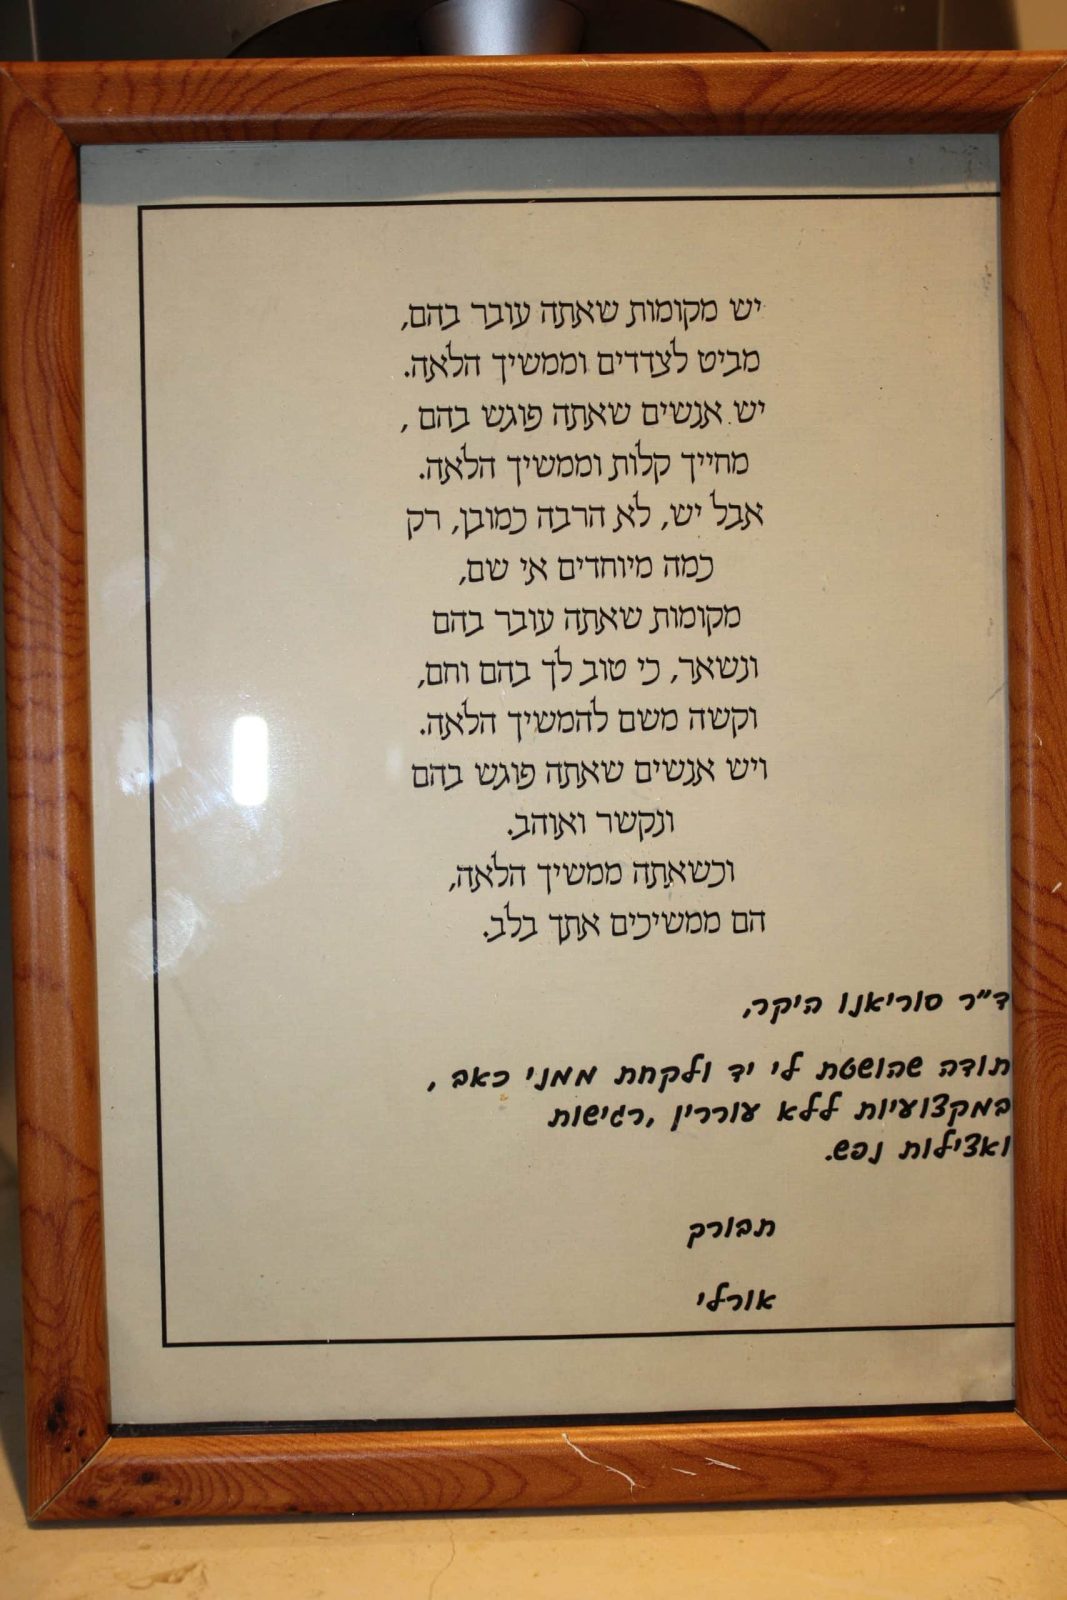 יש מקומות שאתה עובר בהם,
מביט לצדדים וממשיך הלאה.
יש אנשים שאתה פוגש בהם ,
מחייך קלות וממשיך הלאה.
אבל יש, לא הרבה כמובן, רק
כמה מיוחדים אי שם,
מקומות שאתה עובר בהם
ונשאר, כי טוב לך בהם וחם,
וקשה משם להמשיך הלאה.
ויש אנשים שאתה פוגש בהם
ונקשר ואוהב.
וכשאתה ממשיך הלאה,
הם ממשיכים אתך בלב.
ד"ר סוריאנו היקר,
תודה שהושטת לי יד ולקחת ממני כאב ,
במקצועיות ללא עוררין ,רגישות
ואצילות נפש.
תבורך
אורלי